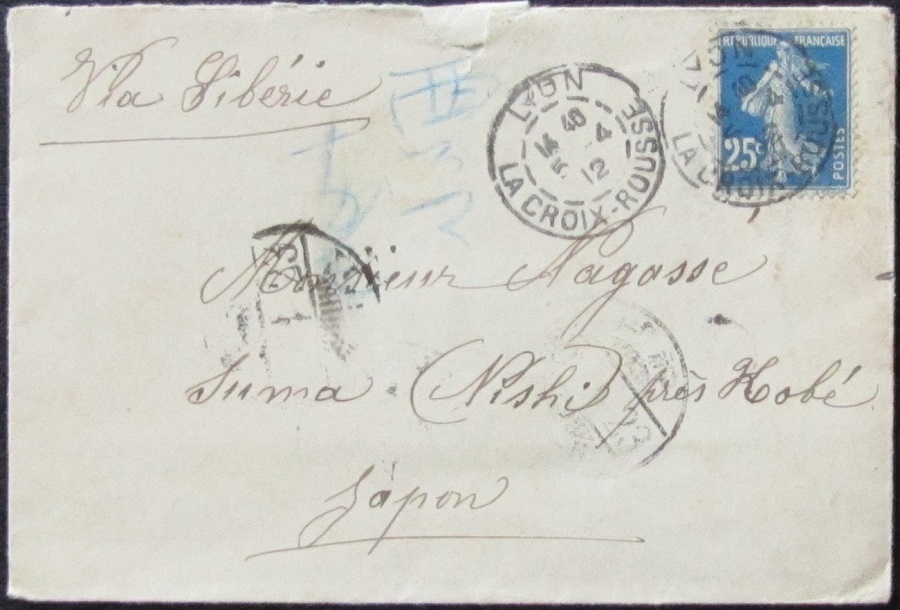 Via Sibérie
LYON
14 40
5-4
12
LA CROIX-ROUSSE
REPUBLIQUE FRANÇAISE
25c
POSTES
LYON
LA CROIX-ROUSSE
Monsieur Nagasse
Suma (Nishi) près Kobé
Japon
西
23